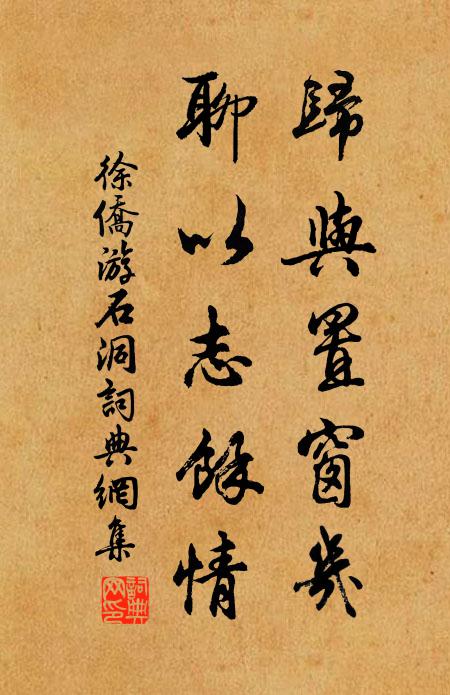 歸與置窗几
聊以志餘情
徐僑游石洞詞典網集
詞典
网印